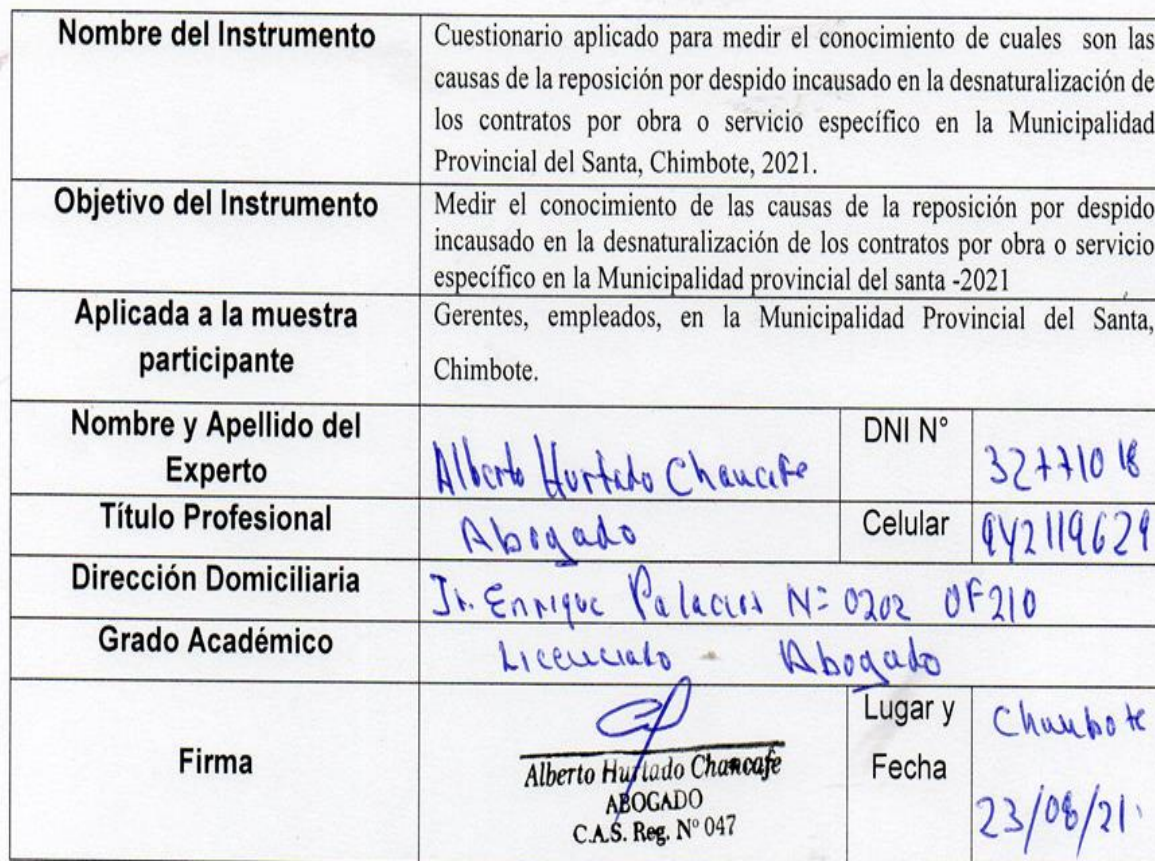 Nombre del Instrumento
Cuestionario aplicado para medir el conocimiento de cuales son las
causas de la reposición por despido incausado en la desnaturalización de
los contratos por obra o servicio específico en la Municipalidad
Provincial del Santa, Chimbote, 2021.
Objetivo del Instrumento
Medir el conocimiento de las causas de la reposición por despido
incausado en la desnaturalización de los contratos por obra o servicio
específico en la Municipalidad provincial del santa -2021
Aplicada a la muestra
participante
Gerentes, empleados, en la Municipalidad Provincial del Santa,
Chimbote.
Nombre y Apellido del
Experto
Alberto Hurtado Chancafe
DNI N°
32771018
Título Profesional
Abogado
Celular
942119629
Dirección Domiciliaria
Jr. Enrique Palacios N= 0202 OF210
Grado Académico
Licenciado - Abogado
Firma
Alberto Hurtado Chancafe
ABOGADO
C.A.S. Reg. N° 047
Lugar y
Fecha
Chimbote
23/08/21